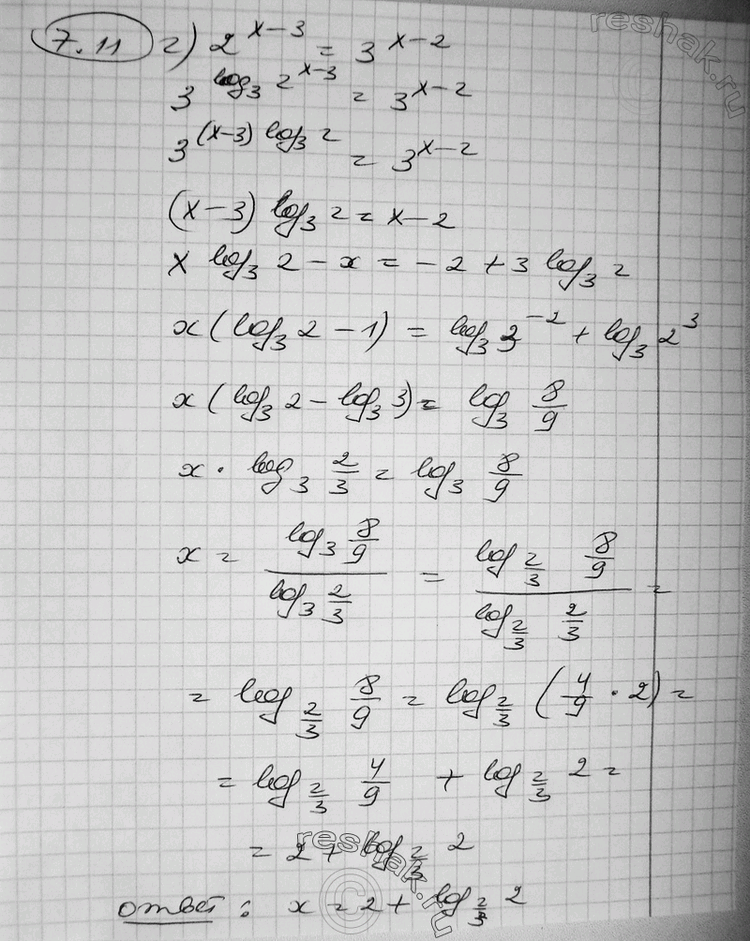 7.11 г) 2^{x-3} = 3^{x-2}
reshak.ru
3^{log_3 2^{x-3}} = 3^{x-2}
3^{(x-3) log_3 2} = 3^{x-2}
(x-3) log_3 2 = x-2
x log_3 2 - x = -2 + 3 log_3 2
x (log_3 2 - 1) = log_3 3^{-2} + log_3 2^3
x (log_3 2 - log_3 3) = log_3 \frac{8}{9}
x · log_3 \frac{2}{3} = log_3 \frac{8}{9}
x = \frac{log_3 \frac{8}{9}}{log_3 \frac{2}{3}} = \frac{log_{\frac{2}{3}} \frac{8}{9}}{log_{\frac{2}{3}} \frac{2}{3}} =
= log_{\frac{2}{3}} \frac{8}{9} = log_{\frac{2}{3}} (\frac{4}{9} · 2) =
= log_{\frac{2}{3}} \frac{4}{9} + log_{\frac{2}{3}} 2 =
= 2 + log_{\frac{2}{3}} 2
reshak.ru
©
ответ: x = 2 + log_{\frac{2}{3}} 2